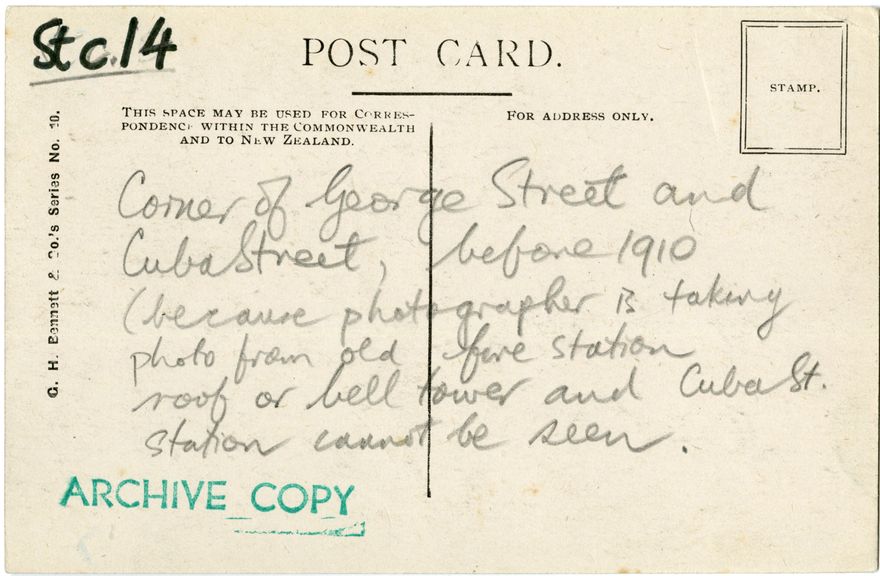 St c.14
POST CARD.
STAMP.
THIS SPACE MAY BE USED FOR CORRES-
PONDENCE WITHIN THE COMMONWEALTH
AND TO NEW ZEALAND.
FOR ADDRESS ONLY.
G. H. Bennett & Co.'s Series No. 10.
Corner of George Street and
Cuba Street, before 1910
(because photographer is taking
photo from old fire station
roof or bell tower and Cuba St.
station cannot be seen.
ARCHIVE COPY